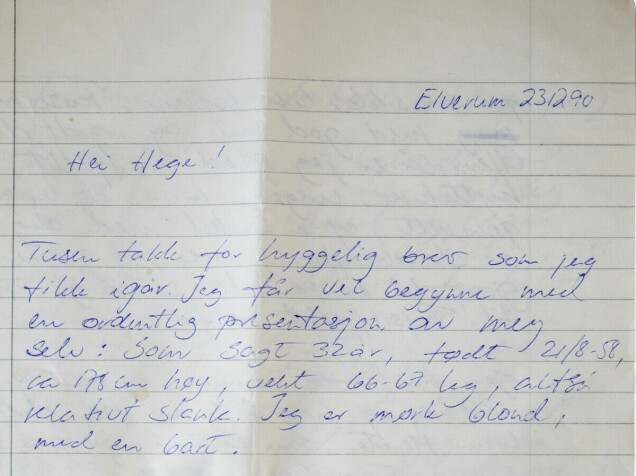 Elverum 231290
Hei Hege!
Tusen takk for hyggelig brev som jeg
fikk igår. Jeg får vel begynne med
en ordentlig presentasjon av meg
selv: Som sagt 32 år, født 21/8-58,
ca 178 cm høy, vekt 66-67 kg, altså
relativt slank. Jeg er mørk blond,
med en bart.